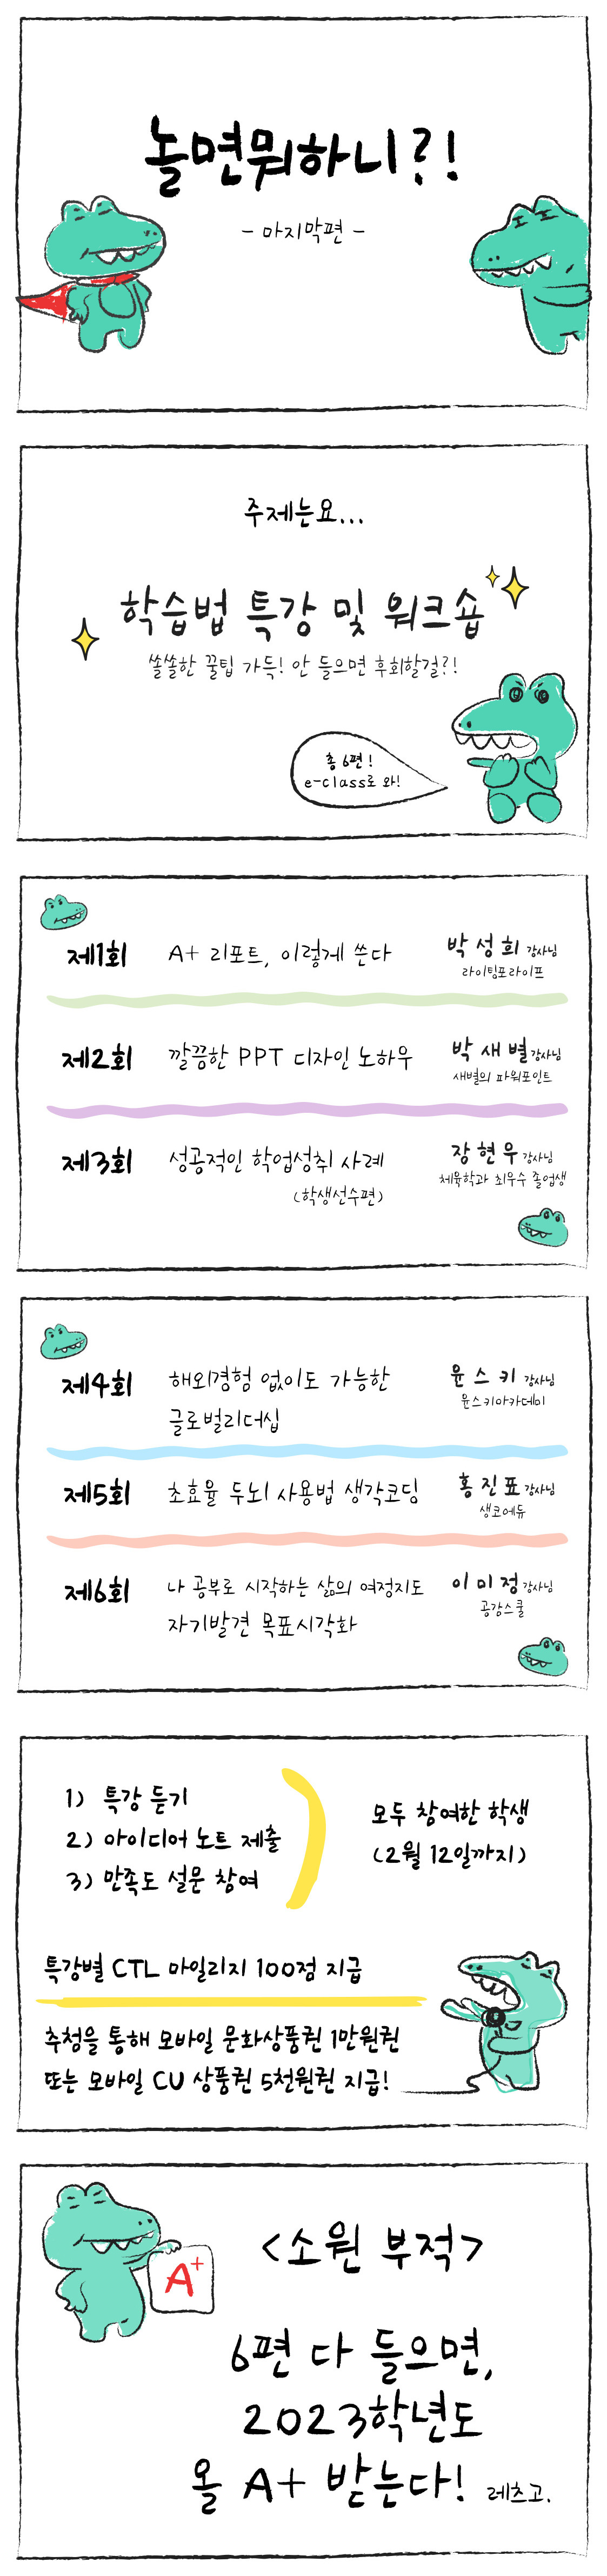 놀면뭐하니?!
- 마지막편 -
주제는요...
학습법 특강 및 워크숍
쏠쏠한 꿀팁 가득! 안 들으면 후회할걸?!
총 6편!
e-class로 와!
제1회 A+ 리포트, 이렇게 쓴다 박성희 강사님
라이팅포라이프
제2회 깔끔한 PPT 디자인 노하우 박새별 강사님
새별의 파워포인트
제3회 성공적인 학업성취 사례 장현우 강사님
(학생선수편) 체육학과 최우수 졸업생
제4회 해외경험 없이도 가능한 윤스키 강사님
글로벌리더십 윤스키아카데미
제5회 초효율 두뇌 사용법 생각코딩 홍진표 강사님
생코에듀
제6회 나 공부로 시작하는 삶의 여정지도 이미정 강사님
자기발견 목표시각화 공감스쿨
1) 특강 듣기
2) 아이디어 노트 제출
3) 만족도 설문 참여
모두 참여한 학생
(2월 12일까지)
특강별 CTL 마일리지 100점 지급
추첨을 통해 모바일 문화상품권 1만원권
또는 모바일 CU 상품권 5천원권 지급!
A+
<소원 부적>
6편 다 들으면,
2023학년도
올 A+ 받는다! 레츠고.